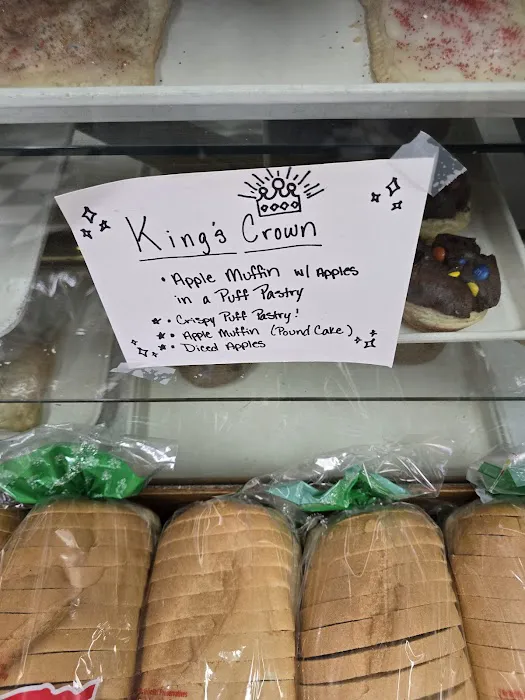 King's Crown
• Apple Muffin w/ Apples
in a Puff Pastry
• Crispy Puff Pastry!
• Apple Muffin (Pound Cake)
• Diced Apples